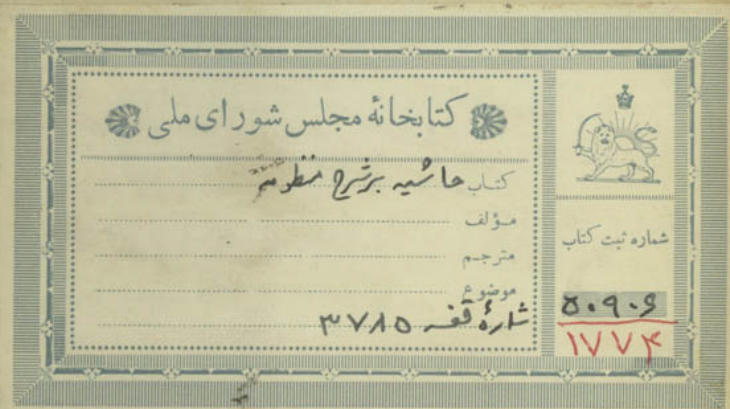 کتابخانهٔ مجلس شورای ملی
کتاب حاشیه بر شرح منظومه
مؤلف
مترجم
موضوع
شمارهٔ قفسه ۳۷۸۵
شماره ثبت کتاب
۵۰۹۰۶
۱۷۷۴